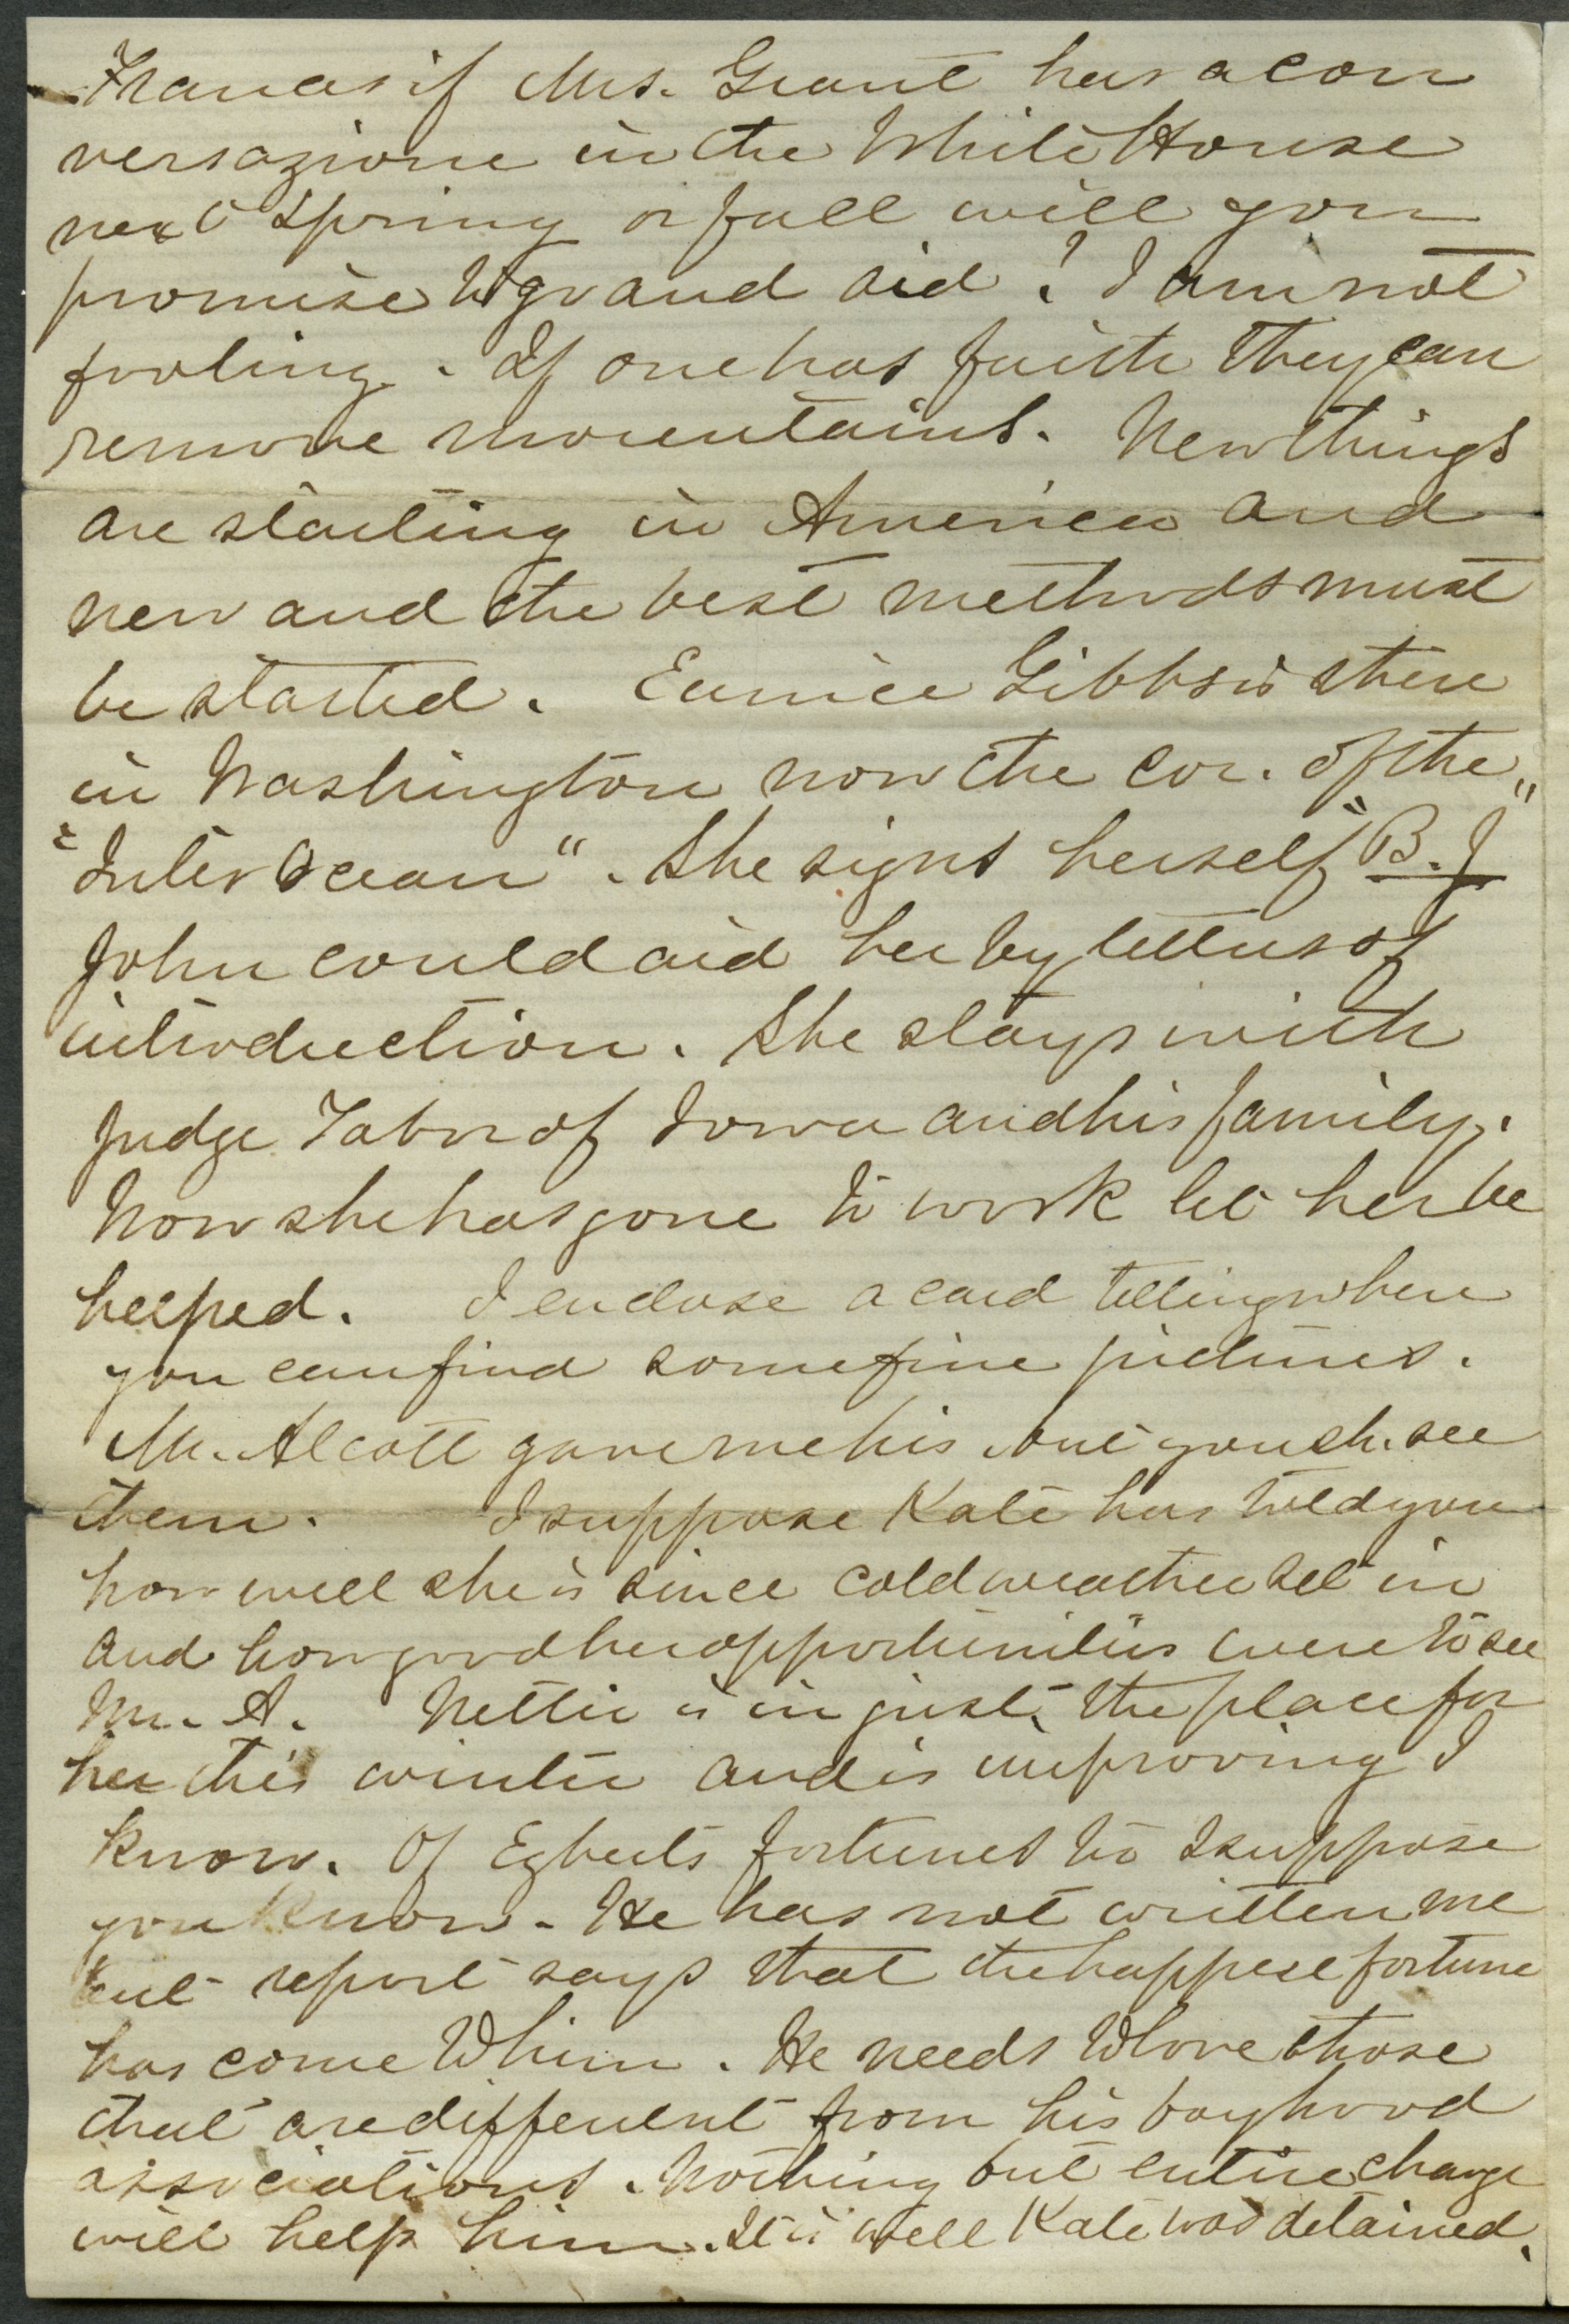 Frances if Mrs. Grant has a con
versazione in the White House
next Spring or fall will you
promise to go and aid? I am not
fooling. If one has faith they can
remove mountains. New things
are starting in America and
new and the best methods must
be started. Eunice Gibbs is there
in Washington now the cor. of the
"Inter Ocean". She signs herself "B. J"
John could aid her by letters of
introduction. She stays with
Judge Tabor of Iowa and his family.
Now she has gone to work let her be
helped. I enclose a card telling where
you can find some fine pictures.
Mr. Alcott gave me his but you sh. see
them. I suppose Kate has told you
how well she is since cold weather set in
and how good her opportunities were to see
Mr. A. Nettie is in just the place for
her this winter and is improving I
know. Of Egberts fortunes too I suppose
you know. He has not written me
but report says that the happiest fortune
has come to him. He needs to love those
that are different from his boyhood
associations. Nothing but entire change
will help him. It is well Kate was detained.